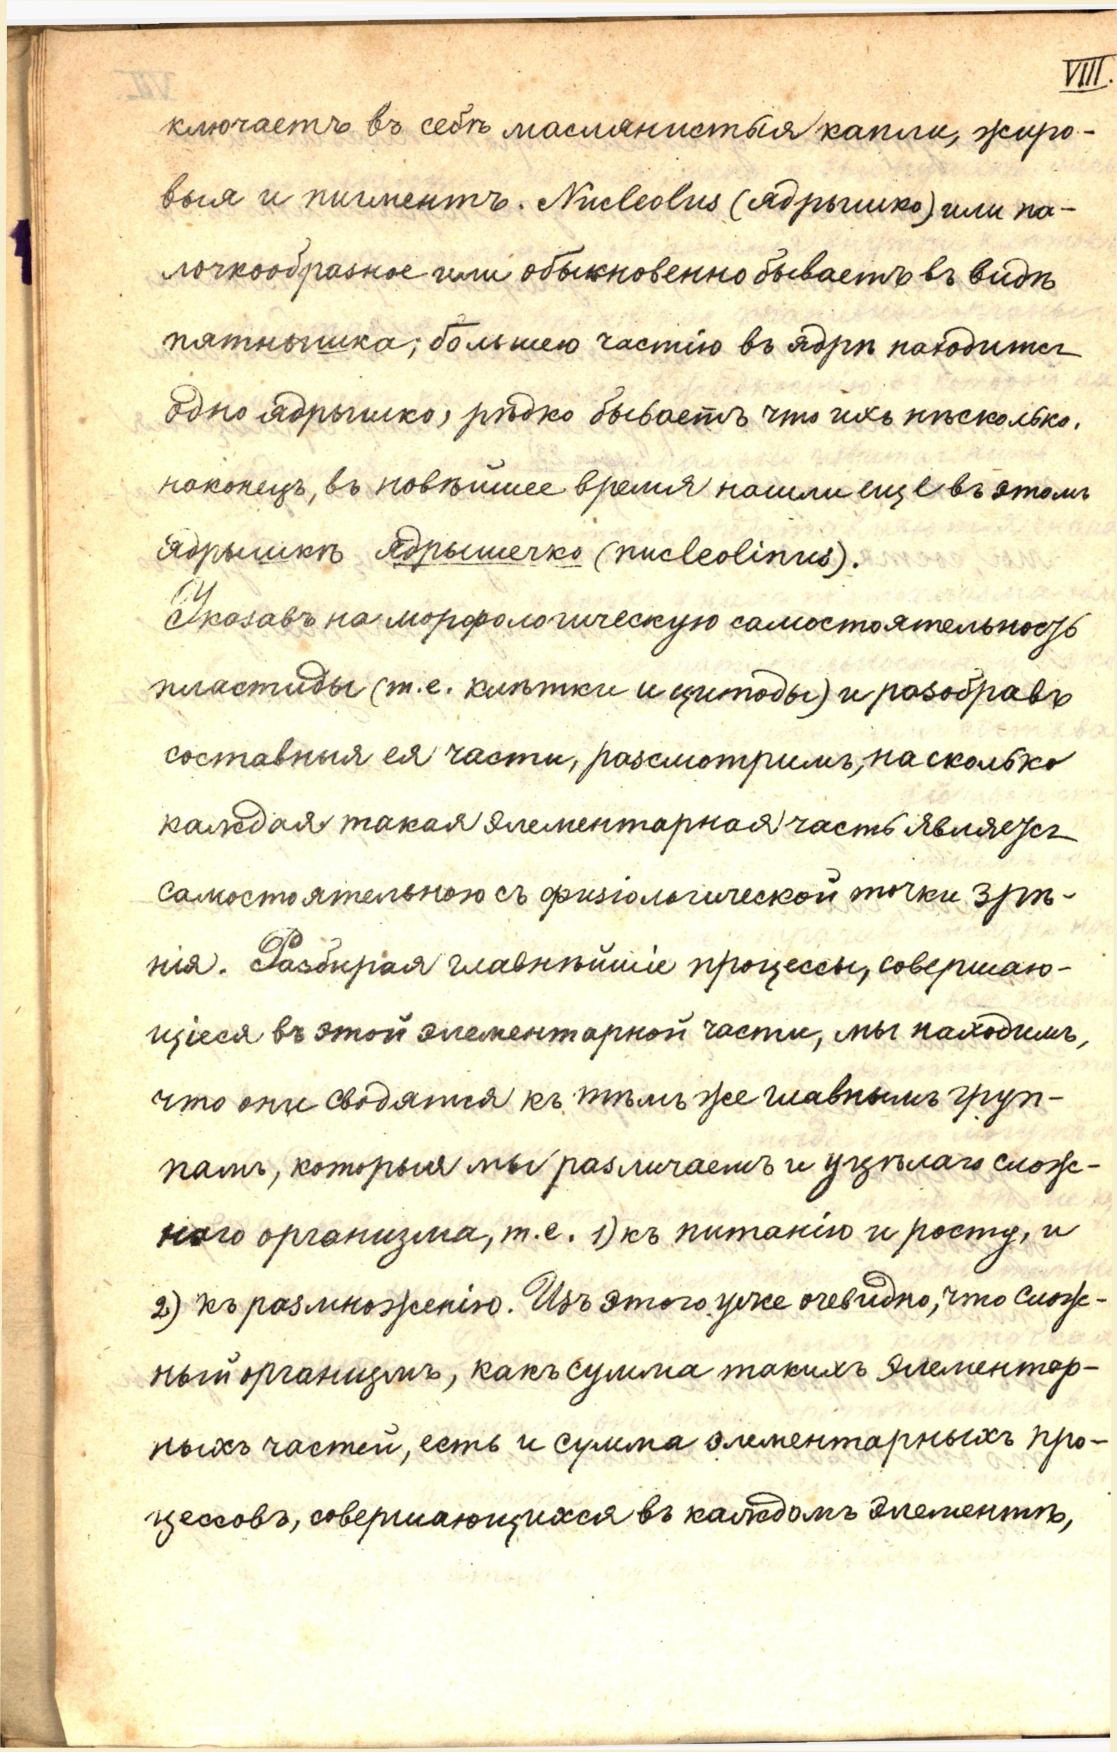 VIII.
ключаетъ въ себѣ маслянистыя капли, жиро-
выя и пигментъ. Nucleolus (ядрышко) или па-
лочкообразное или обыкновенно бываетъ въ видѣ
пятнышка; большею частію въ ядрѣ находится
одно ядрышко, рѣдко бываетъ что ихъ нѣсколько.
наконецъ, въ новѣйшее время нашли еще въ этомъ
ядрышкѣ ядрышечко (nucleolinus).
Указавъ на морфологическую самостоятельность
пластиды (т.е. клѣтки и цитоды) и разобравъ
составныя ея части, разсмотримъ, на сколько
каждая такая элементарная часть является
самостоятельною съ физіологической точки зрѣ-
нія. Разбирая главнѣйшіе процессы, совершаю-
щіеся въ этой элементарной части, мы находимъ,
что они сводятся къ тѣмъ же главнымъ груп-
памъ, которыя мы различаемъ и у цѣлаго слож-
ного организма, т.е. 1) къ питанію и росту, и
2) къ размноженію. Изъ этого уже очевидно, что слож-
ный организмъ, какъ сумма такихъ элементар-
ныхъ частей, есть и сумма элементарныхъ про-
цессовъ, совершающихся въ каждомъ элементѣ,